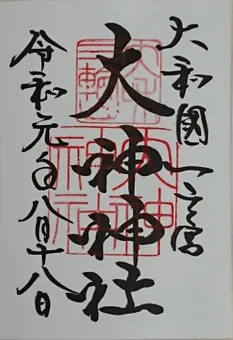 大和國一之宮
大神神社
令和元年八月十八日
三輪
大神神社